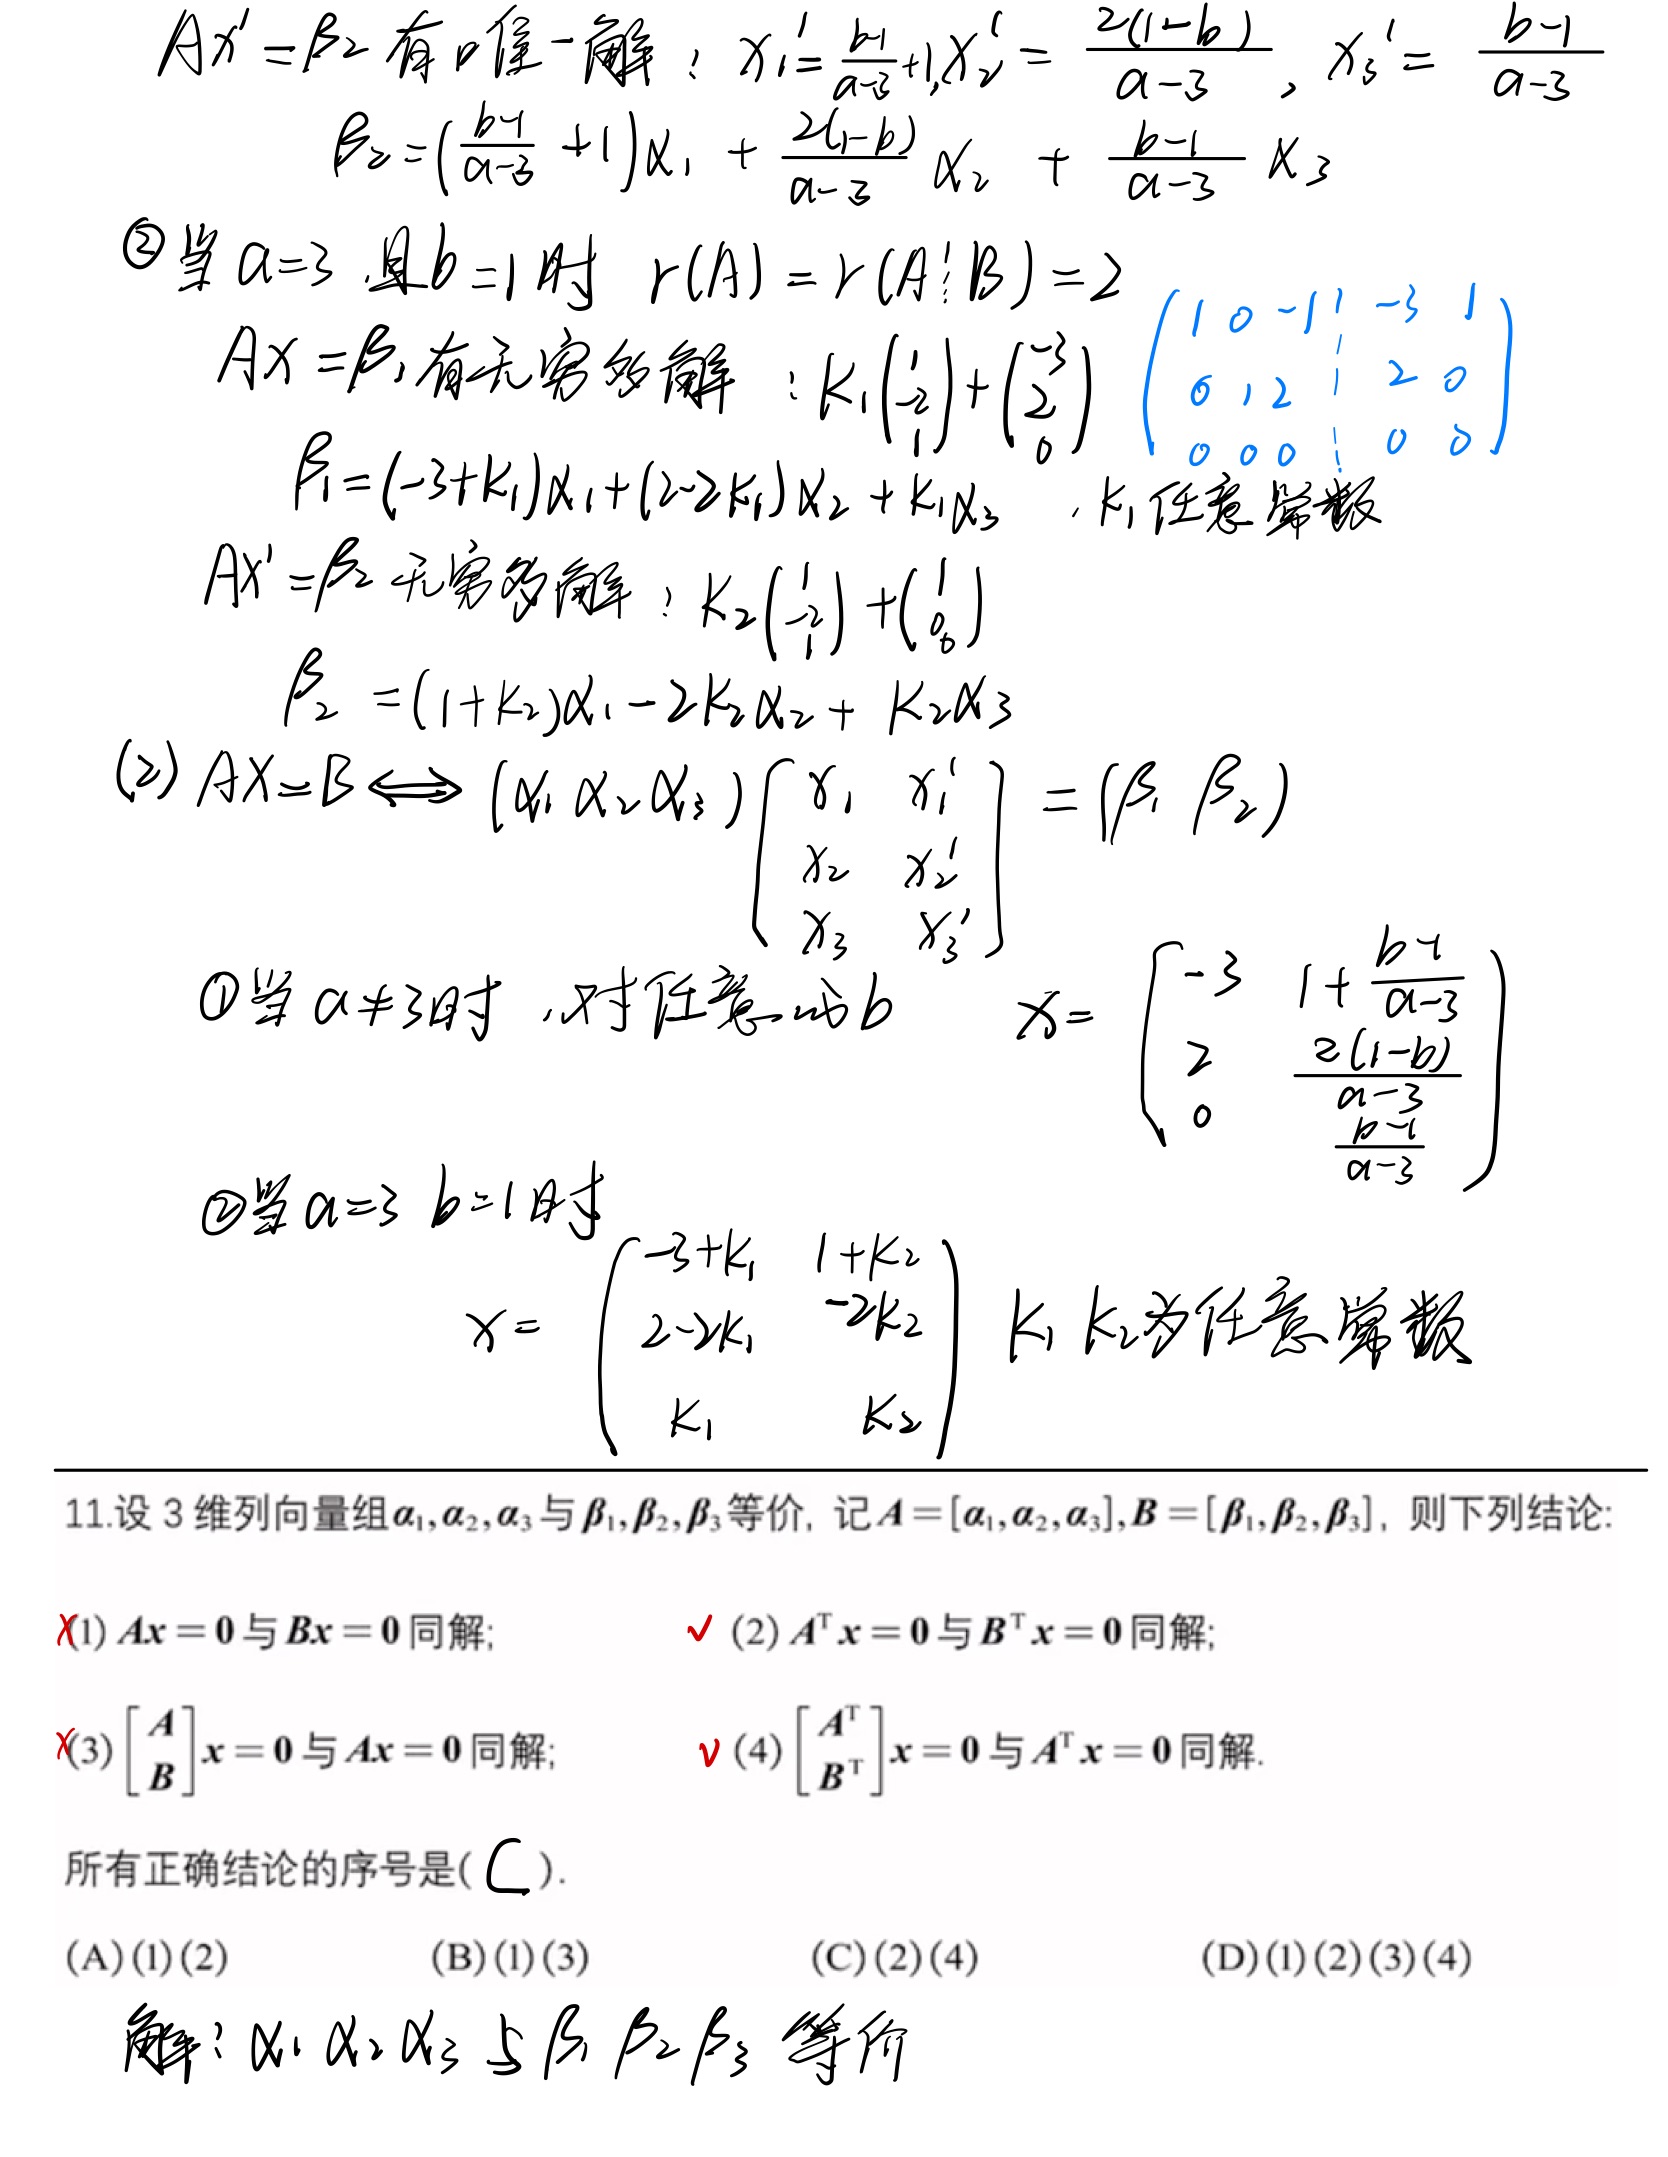 Ax' = β₂ 有唯一解: x₁' = (b-1)/(a-3) + 1, x₂' = 2(1-b)/(a-3), x₃' = (b-1)/(a-3)
β₂ = ((b-1)/(a-3) + 1)α₁ + 2(1-b)/(a-3) α₂ + (b-1)/(a-3) α₃
② 当 a=3 且 b=1 时 r(A) = r(A⋮B) = 2
(1 0 -1 ¦ -3 1
0 1 2 ¦ 2 0
0 0 0 ¦ 0 0)
Ax = β₁ 有无穷多解: k₁(1 -2 1) + (-3 2 0)
β₁ = (-3+k₁)α₁ + (2-2k₁)α₂ + k₁α₃ , k₁任意常数
Ax' = β₂ 无穷多解: k₂(1 -2 1) + (1 0 0)
β₂ = (1+k₂)α₁ - 2k₂α₂ + k₂α₃
(2) AX = B ⟺ (α₁ α₂ α₃) [x₁ x₁' = (β₁ β₂)
x₂ x₂'
x₃ x₃']
① 当 a≠3时, 对任意的b x = (-3 1+(b-1)/(a-3)
2 2(1-b)/(a-3)
0 (b-1)/(a-3))
② 当 a=3 b=1时
x = (-3+k₁ 1+k₂
2-2k₁ -2k₂ k₁ k₂为任意常数
k₁ k₂)
11.设 3 维列向量组α₁,α₂,α₃与β₁,β₂,β₃等价, 记A=[α₁,α₂,α₃],B=[β₁,β₂,β₃], 则下列结论:
✗(1) Ax = 0 与 Bx = 0 同解; ✓(2) Aᵀx = 0 与 Bᵀx = 0 同解;
✗(3) [A B] x = 0 与 Ax = 0 同解; ✓(4) [Aᵀ Bᵀ] x = 0 与 Aᵀx = 0 同解.
所有正确结论的序号是( C ).
(A)(1)(2) (B)(1)(3) (C)(2)(4) (D)(1)(2)(3)(4)
解: α₁ α₂ α₃ 与 β₁ β₂ β₃ 等价